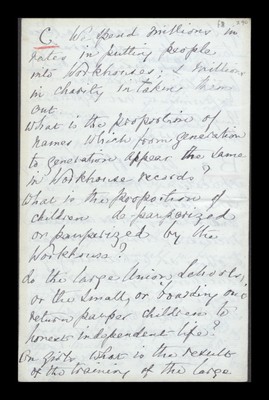 C. We spend millions in
rates in putting people
into Workhouses; & millions
in charity in taking them
out.
What is the proportion of
names which from generation
to generation appear the same
in Workhouse records?
What is the proportion of
children de pauperized
or pauperized by the
Workhouse?
Do the large Union Schools,
or the small, or "boarding out"
return pauper children to
honest independent life?
On girls what is the result
of the training of the large